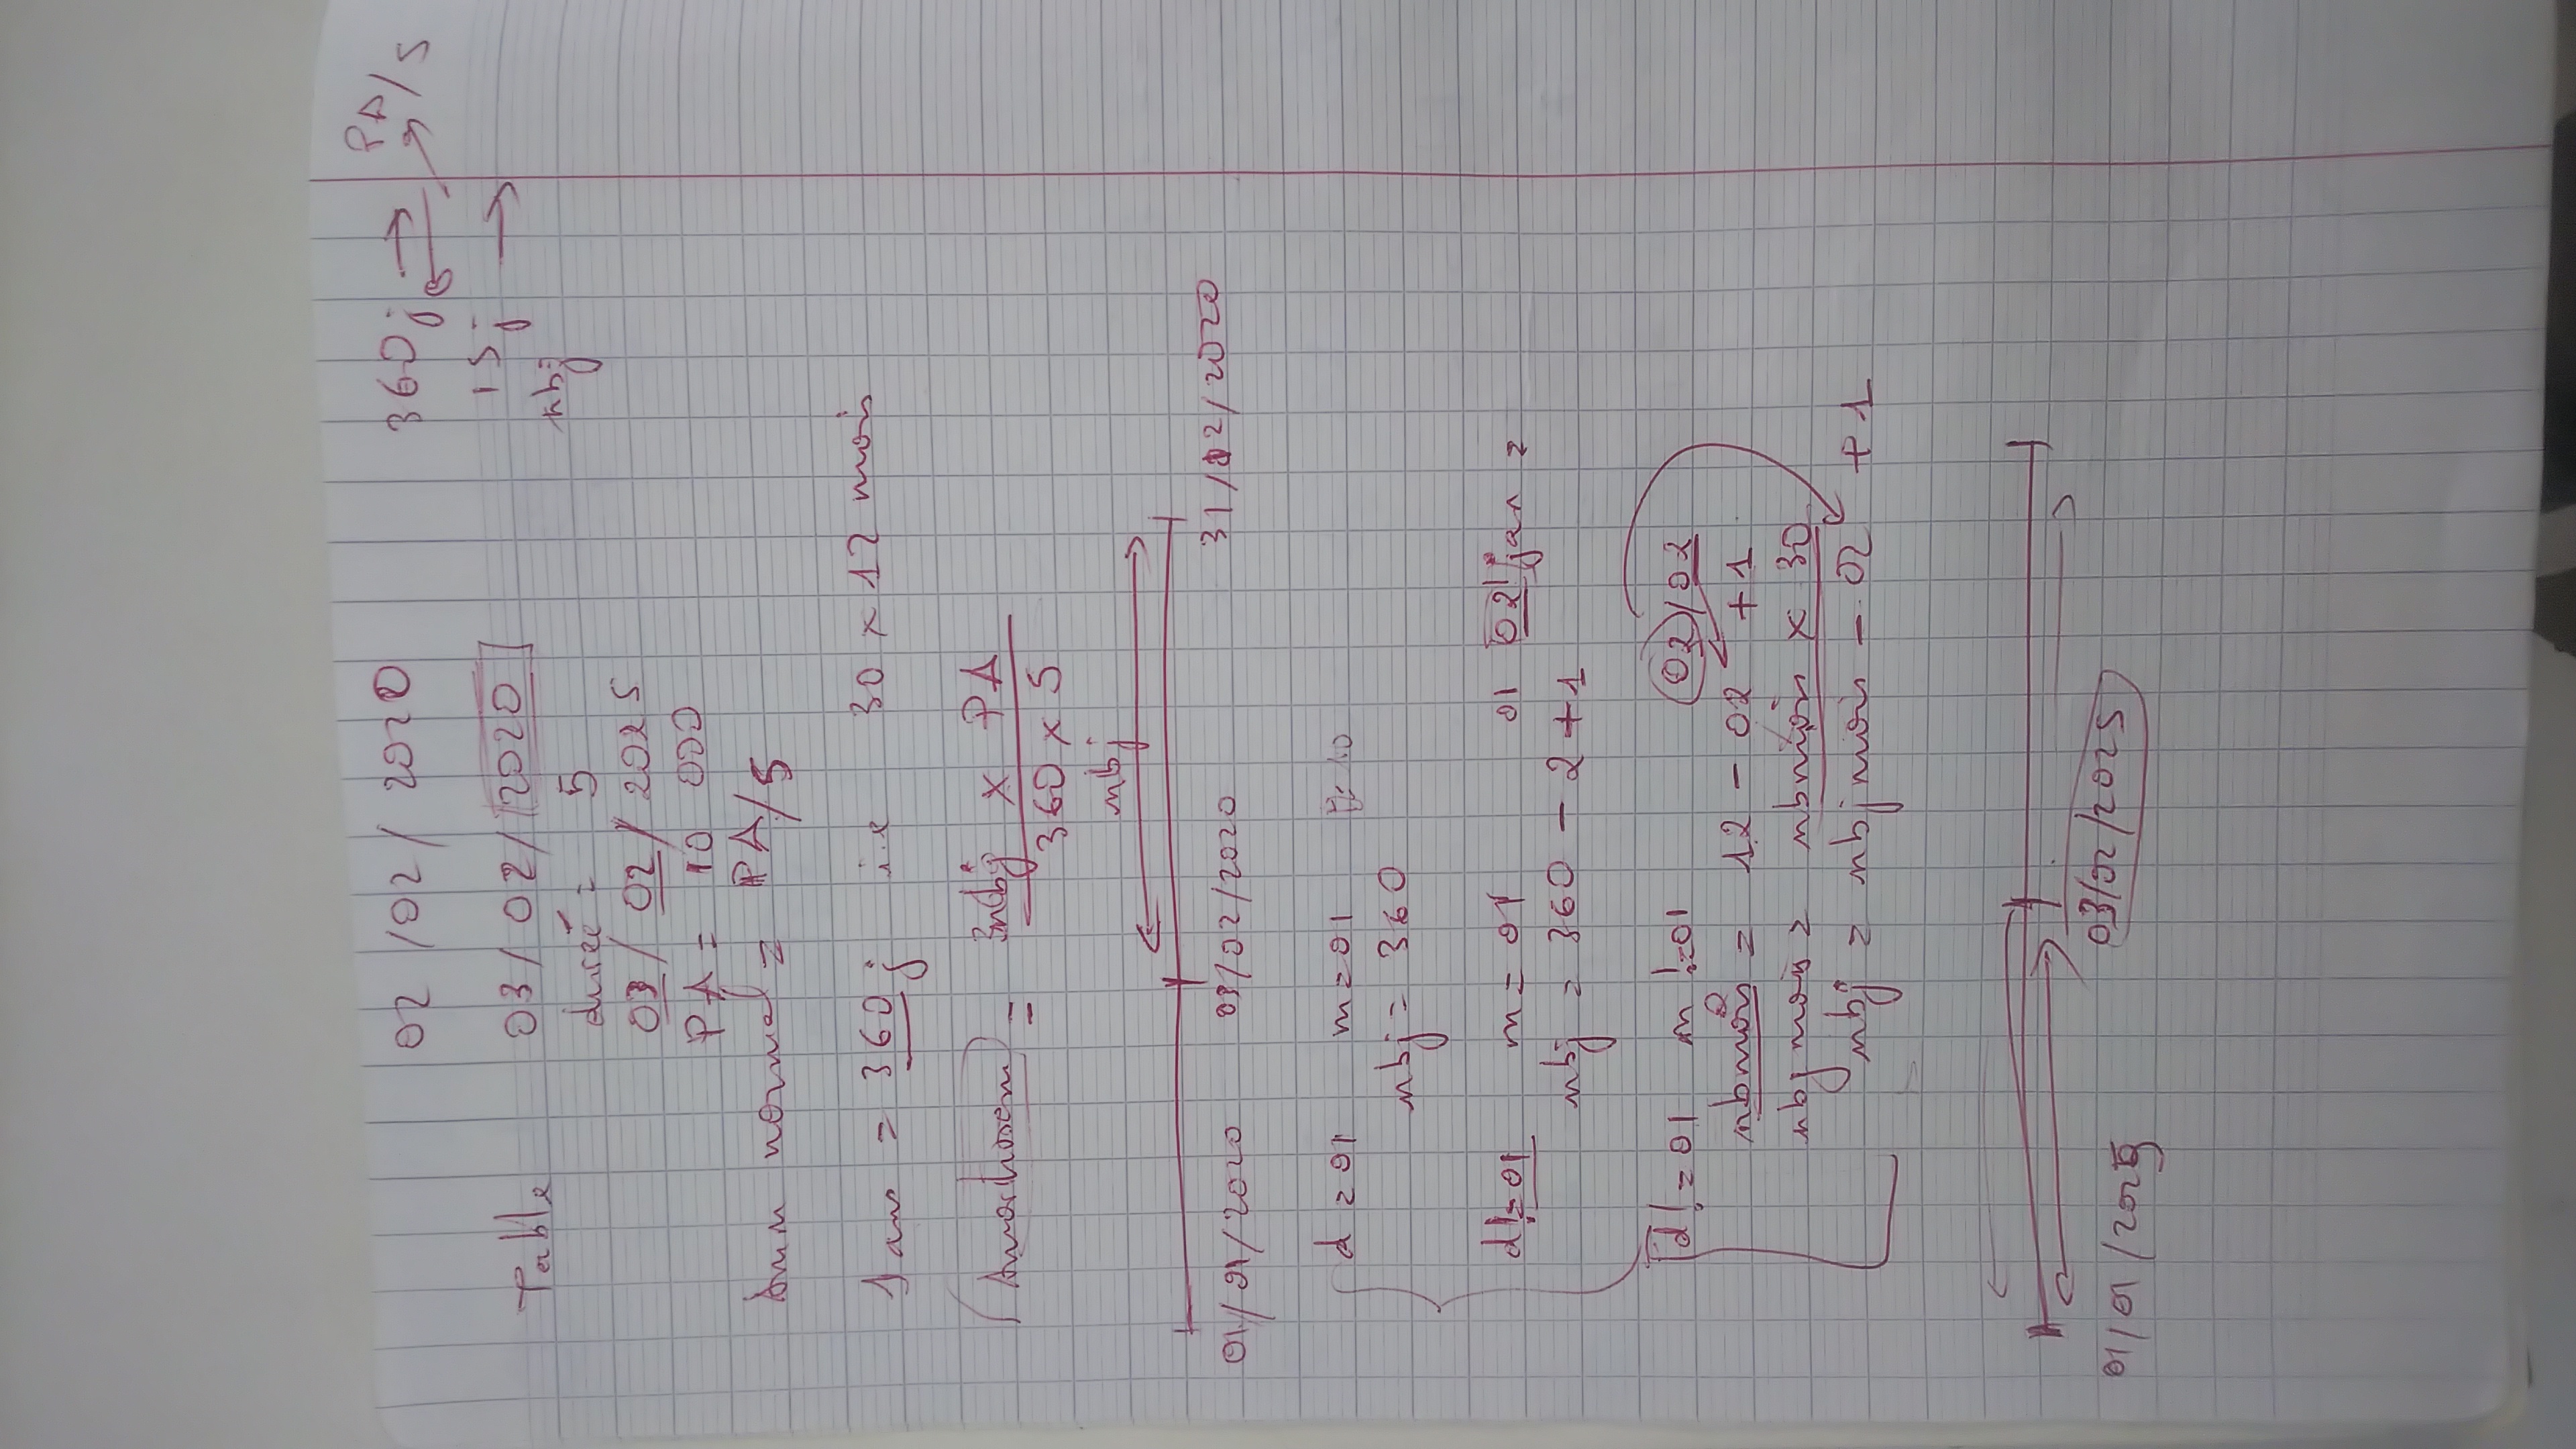 02/02/2020
360j → PA/5
Table 03/02/2020
15j →
nbj
durée = 5
03/02/2025
PA = 10 000
Amm normal = PA/5
1 ans = 360j i.e 30 x 12 mois
Amortissem = nbj x PA
360 x 5
nbj
01/01/2020 03/02/2020 31/12/2020
d = 01 m = 01
nbj = 360
d != 01 m = 01 01 02 jan =
nbj = 360 - 2 + 1
d != 01 m != 01 02/02
nbmois = 12 - 02 + 1
nbjmois = nbmois x 30
nbj = nbjmois - 02 + 1
01/01/2025 03/02/2025